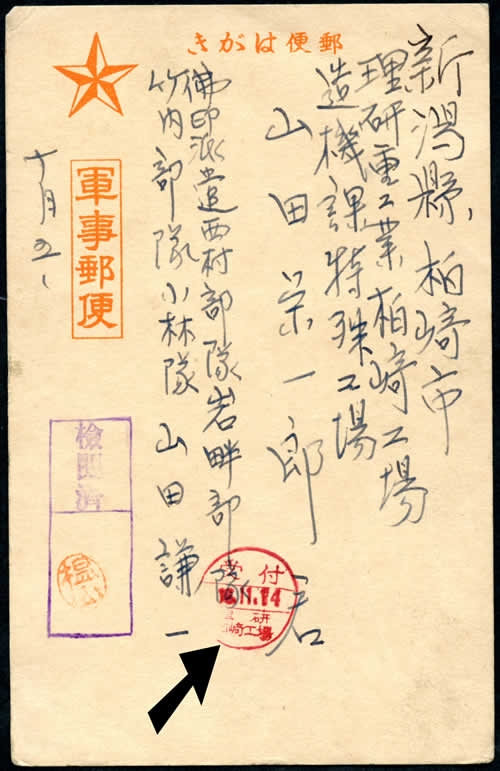 郵便はがき
新潟縣、柏崎市
理研重工業柏崎工場
造機課特殊工場
山田栄一郎君
佛印派遣西村部隊岩畔部隊
竹内部隊小林隊 山田謙一
軍事郵便
十月五
檢閲済
受付
11.14
研
崎工場